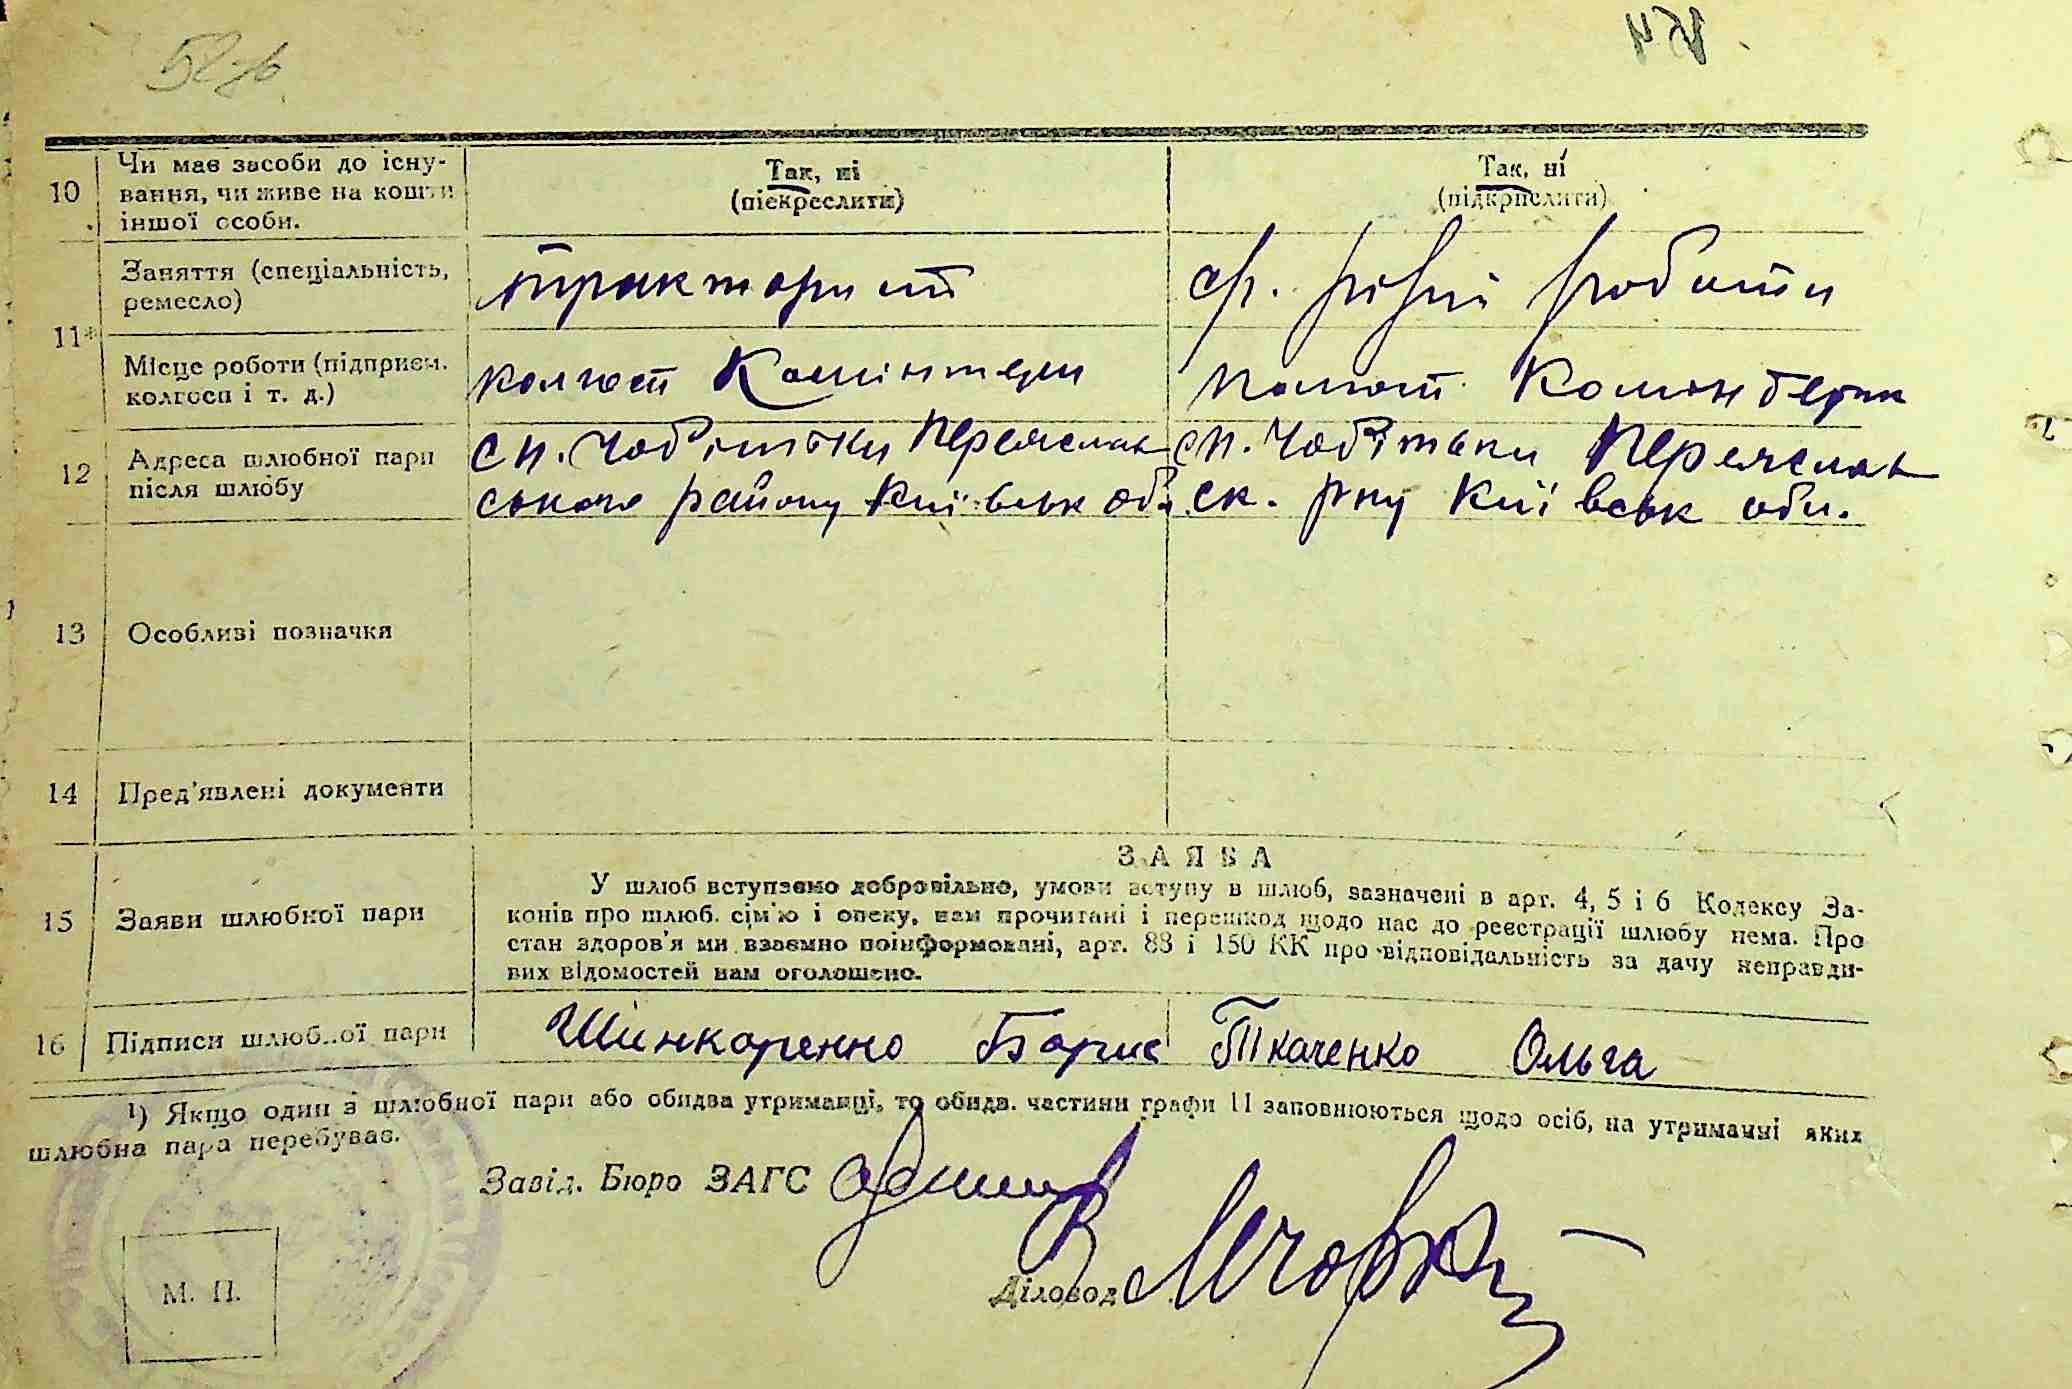 52
154
10 Чи має засоби до існу-
вання, чи живе на кошти
іншої особи.
Так, ні
(піекреслити)
Так, ні
(підкрпслити)
11*
Заняття (спеціальність,
ремесло)
тракторист
робити
Місце роботи (підприєм.
колгосп і т. д.)
колгосп Комінтерн
Комінтерн
12 Адреса шлюбної пари
після шлюбу
сн. Чобітьки Переяслав
ського району Київськ обл
сн. Чобітьки Переяслав
ск. рну Київськ обл.
13 Особливі позначки
14 Пред'явлені документи
15 Заяви шлюбної пари
ЗАЯВА
У шлюб вступаємо добровільно, умови вступу в шлюб, зазначені в арт. 4, 5 і 6 Кодексу За-
конів про шлюб. сім'ю і опеку, нам прочитані і перешкод щодо нас до реєстрації шлюбу нема. Про
стан здоров'я ми взаємно поінформовані, арт. 88 і 150 КК про відповідальність за дачу неправди-
вих відомостей нам оголошено.
16 Підписи шлюбної пари
Шинкаренко Борис
Ткаченко Ольга
¹) Якщо один з шлюбної пари або обидва утриманці, то обидв. частини графи 11 заповнюються щодо осіб, на утриманні яких
шлюбна пара перебуває.
Завід. Бюро ЗАГС
Діловод
М. П.